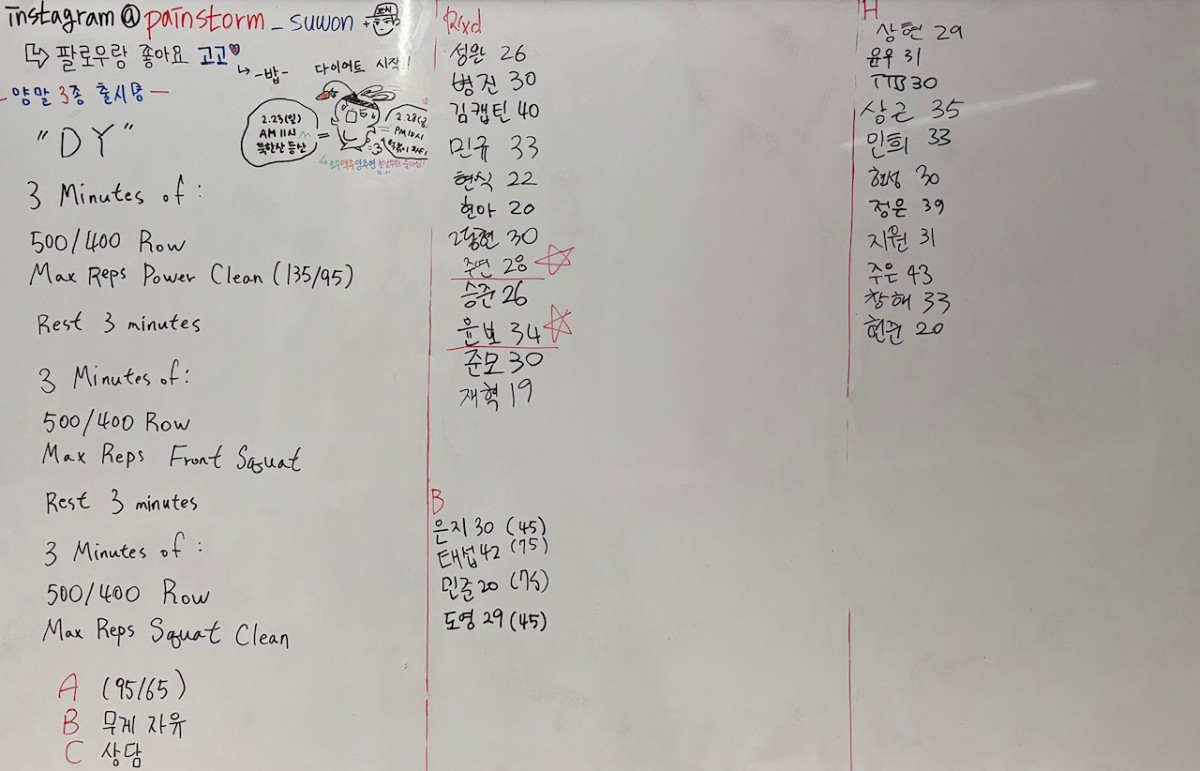 instagram@painstorm_suwon +
↳ 팔로우랑 좋아요 고고♥
↳ -밥- 다이어트 시작!!
- 양말 3종 출시
2.23(일)
AM 11시
북한산 등산
=
2.28(금)
PM 10시
"DY"
3 Minutes of:
500/400 Row
Max Reps Power Clean (135/95)
Rest 3 minutes
3 Minutes of:
500/400 Row
Max Reps Front Squat
Rest 3 minutes
3 Minutes of:
500/400 Row
Max Reps Squat Clean
A (95/65)
B 무게 자유
C 상담
Rxd
성완 26
병진 30
김캡틴 40
민규 33
현식 22
현아 20
30
주연 28
승준 26
윤보 34
준모 30
재혁 19
B
은지 30 (45)
태섭 42 (75)
민준 20 (75)
도영 29 (45)
상현 29
윤우 31
TTB 30
상근 35
민희 33
현성 30
정은 39
지원 31
주은 43
창해 33
현준 20